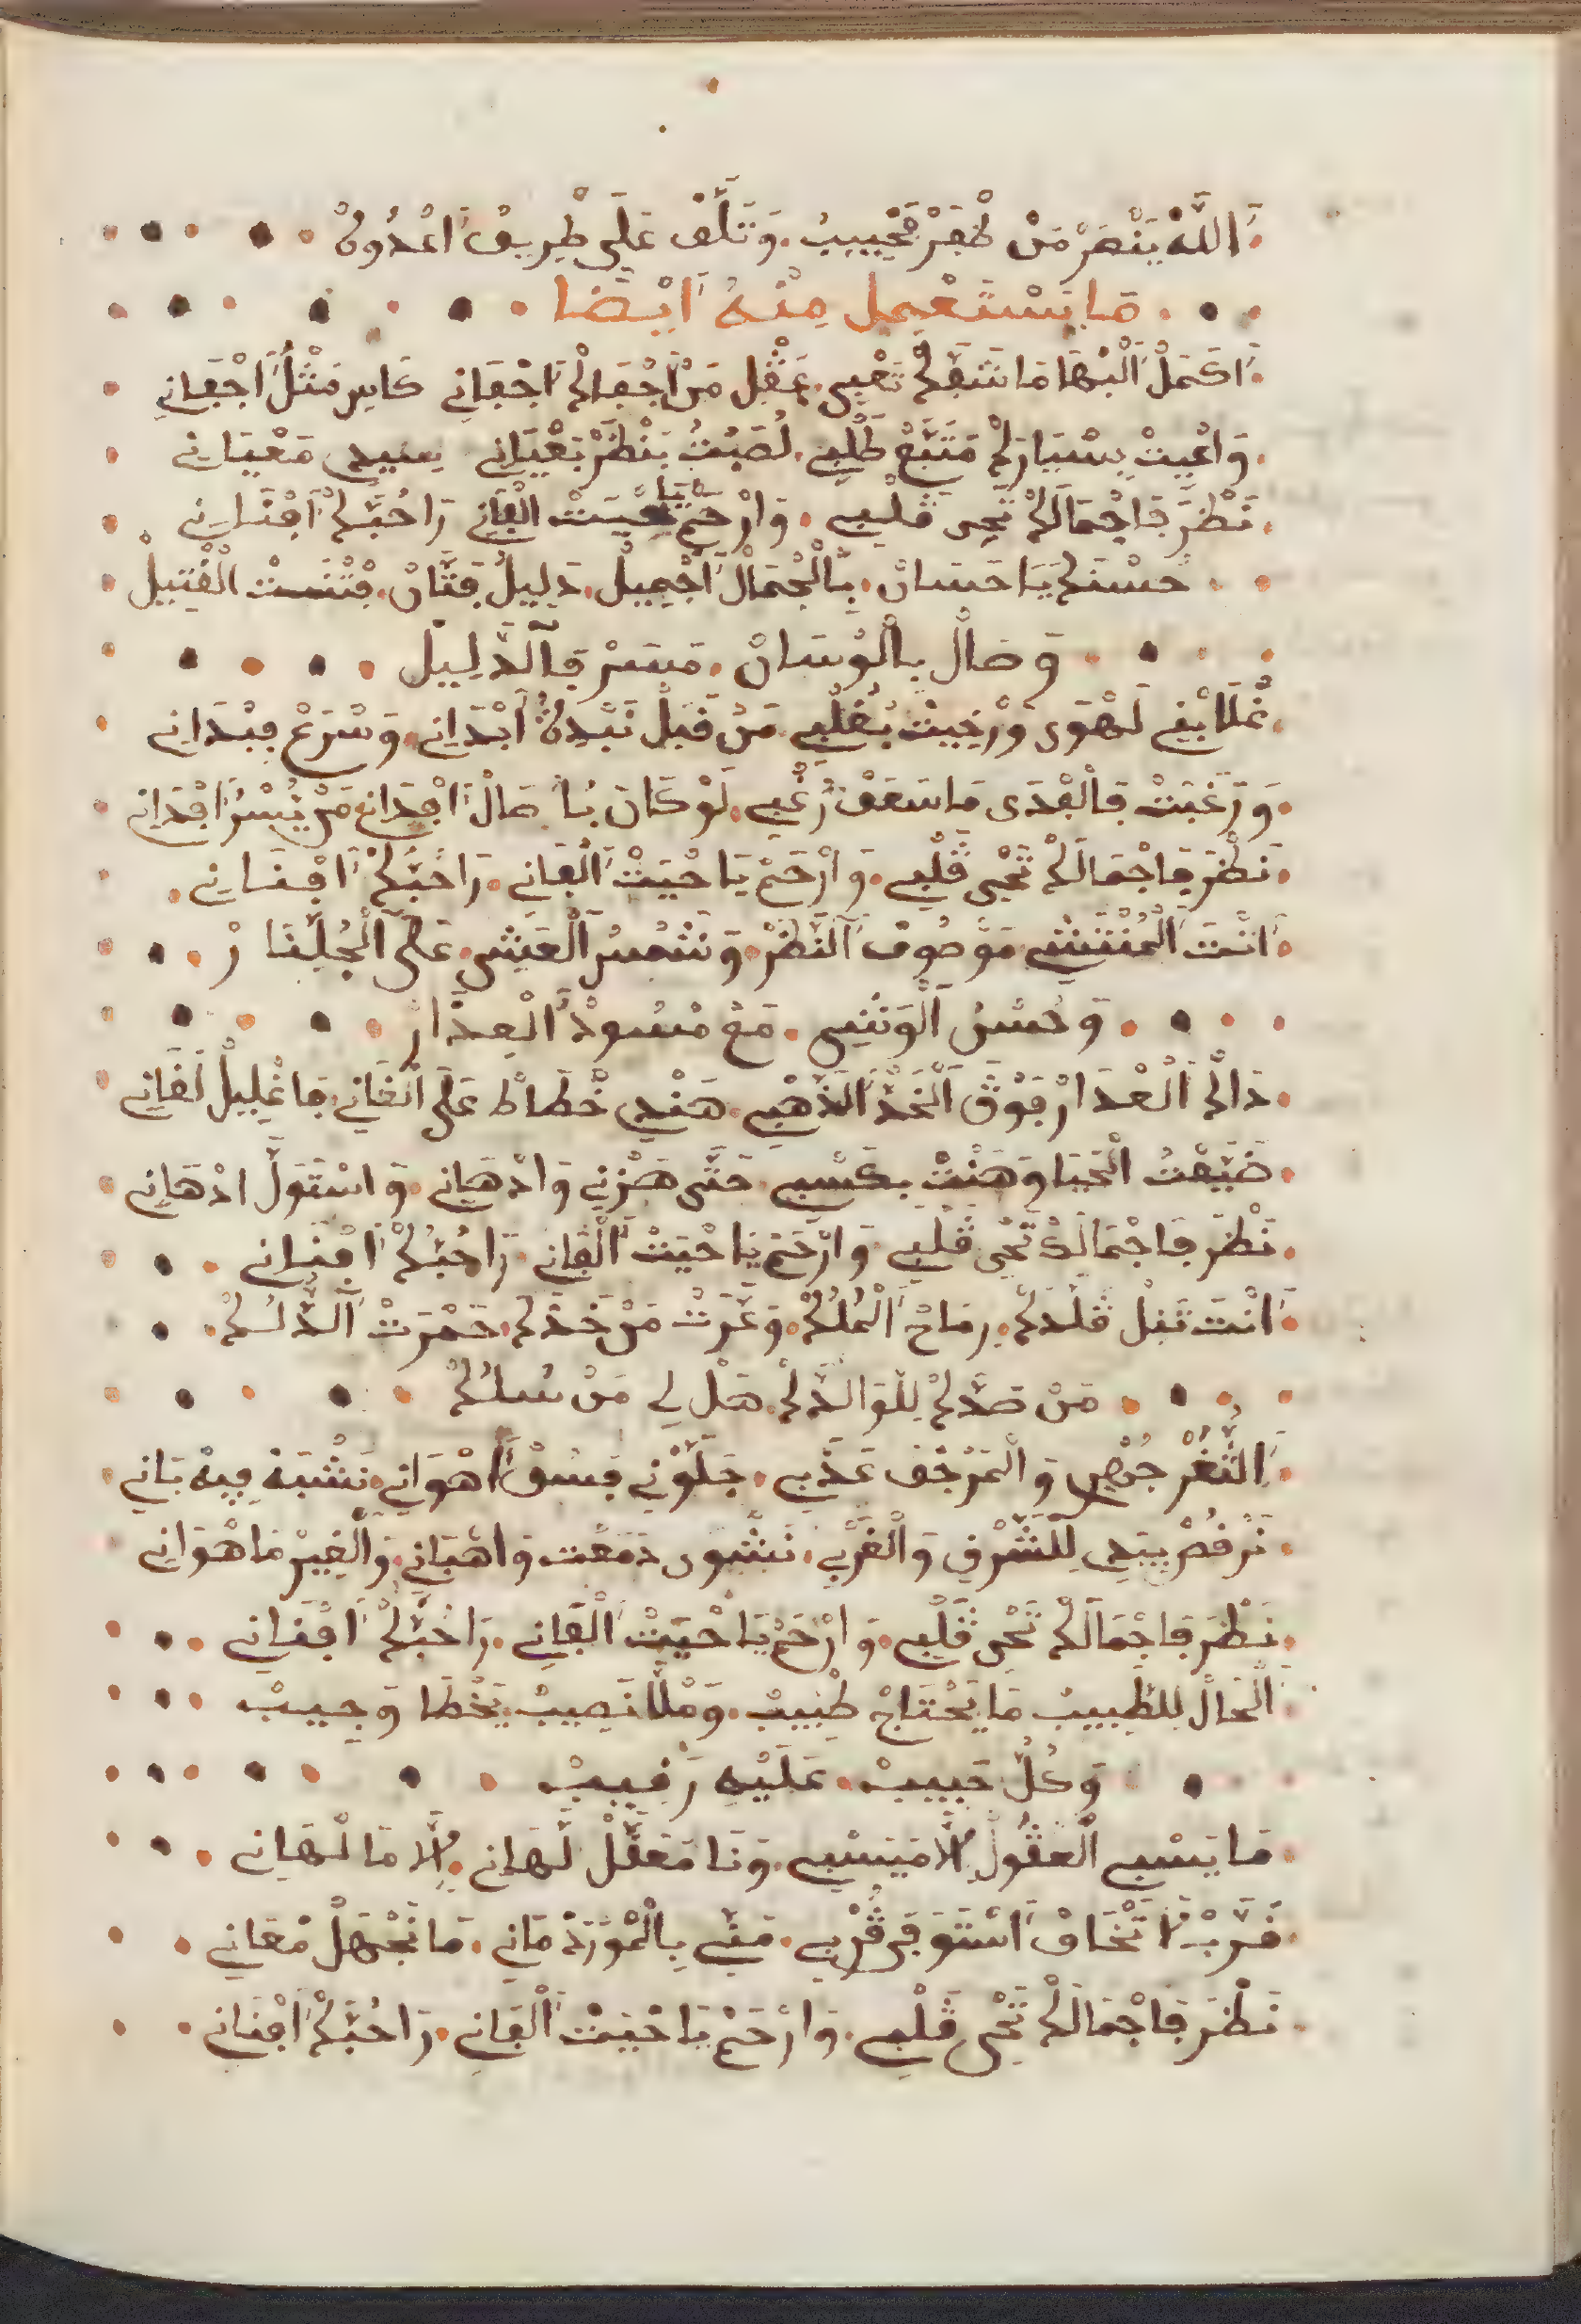 اَللَّهْ يَنْصَرْ مَنْ ظْفَرْ بَحْبِيبُ. وَتَلَّفْ عَلَى طْرِيقُ اَعْدُوهْ
مَا يَسْتَعْمِل مِنْهُ اَيْضَا
اَكَمَلْ اَلْبْهَا مَا شَفَّكْ تَعْبِي. عَقْلِي مَنْ اَجْفَاكْ اَجْفَانِي كَايِر مَثْلُ اَجْفَانِي
وَاعْيِيتْ بَسْيَارَكْ مَتَّبَّعْ طَلْبِي. لُصَبْتُ يَنْظَرْ بَعْيَانِي سِيدِي مَعْيَانِي
نَظْرَ فَاجْمَالَكْ تَحْيِي قَلْبِي. وَارْحَمْ يَا حْيَيْتْ اَلْفَانِي رَا حُبَّكْ اَفْنَانِي
حُسْنَكْ يَا حَسَانْ. بَالْجْمَالْ اَجْمِيلْ. دَلِيلْ فَتَّانْ. فْتْنَسْتْ الْفْتِيلْ
وَصَالْ بِالْوْسَانْ. مَسَرْ فَالدَّلِيلْ
غْلَابْنِي لَهْوَى وَرْخِيتْ بُغْلْبِي. مَنْ قَبَلْ نَبْدِهْ اَبْدَانِي. وَسْرَعْ فِبْدَانِي
وَرَغْبَتْ فَالْفْدَى مَا سَعَفْ رُغْبِي. لَوْ كَانَ يَا صَالْ اَفْدَانِي مَنْ يُسْرُ اَفْدَانِي
نَظْرَ فَاجْمَالَكْ تَحْيِي قَلْبِي. وَارْحَمْ يَا حْيَيْتْ اَلْفَانِي. رَا حُبَّكْ اَفْنَانِي.
اَنْتَ اَلْمُنْتَشِي مَوْصُوفْ اَلنّْظَرْ. وَشَمْسُ اَلْعَشِي. عَلَى اَلْجُلِّنَا رْ
وَحُسْنُ اَلْوَشِي. مَعْ مْسُودْ اَلْعِدَارْ
دَاكْ اَلْعْدَارْ فَوْقَ اَلْخَدّْ اَلذَّهْبِي. هَنْدِي خَطَّاطْ عَلَى اَلْغَانِي. مَا غْلِيلْ لَغَانِي
ضَيَّعْتُ الْحَيَا وَهَنْتْ بكَسْبِي. حَتَّى هَزْنِي وَادْهَانِي. وَاسْتَوَلَّ ادْهَانِي
نَظْرَ فَاجْمَالَكْ تَحْيِي قَلْبِي. وَارْحَمْ يَا حْيَيْتْ اَلْفَانِي. رَا حُبَّكْ اَفْنَانِي
اَنْتَ نَبْلْ قَلْدَكْ. رِمَاحْ اَلْمُلُكْ. وَغَرَتْ مَنْ خَدَّكْ. حَمْرَتْ اَلدُّلُكْ.
مَنْ صَدَّكْ لِلْوَالدَّكْ. هَلْ لِي مَنْ سُلُكْ
اَلثَّغْرْ جُوْهَرِي وَالْمَرْجَفْ عَذْبِي. جَلَوْنِي فَسُوقْ اَهْوَانِي. نَشْبَهْ فِيهْ بَانِي
نَرْفُصْ بِيَدِي لِلشَّرْقِ وَالْغَرْبِي. نَشْوَى دَمْعَتْ وَاهْبَانِي. وَالْغِيرْ مَا هْوَانِي
نَظْرَ فَاجْمَالَكْ تَحْيِي قَلْبِي. وَارْحَمْ يَا حْيَيْتْ اَلْفَانِي. رَا حُبَّكْ اَفْنَانِي
اَلْحَالْ لِلطّْبِيبْ مَا يَحْتَاجْ طْبِيبْ. وَمْلَّا نَصِيبْ. يَخْطَا وَجِيبْ
وَكُلّْ حَبِيبْ. عَلَيْهِ رَقِيبْ
مَا يَسْبِي الْعْقُولْ اِلَّا مَيَسْبِي. وَنَا مَعَقَّلْ لَهَانِي. اِلَّا مَا لْهَانِي
قَرَّبْ لَا تْخَافْ اَسْتَوْفَى قُرْبِي. مَنِّي بِالْمُوْرَدْ مَانِي. مَا نَجْهَلْ مْعَانِي
نَظْرَ فَاجْمَالَكْ تَحْيِي قَلْبِي. وَارْحَمْ يَا حْيَيْتْ اَلْفَانِي. رَا حُبَّكْ اَفْنَانِي